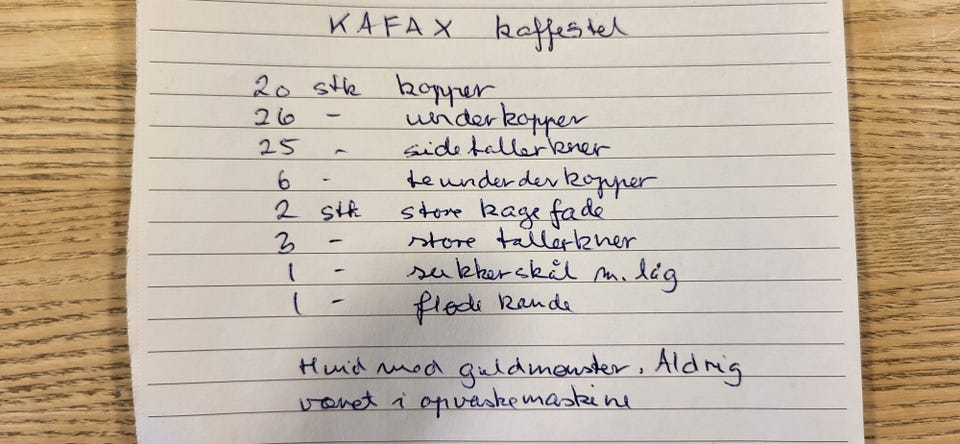 KAFAX kaffestel
20 stk kopper
26 - underkopper
25 - sidetallerkner
6 - teunderderkopper
2 stk store kagefade
3 - store tallerkner
1 - sukkerskål m. låg
1 - fløde kande
Hvid med guldmønster. Aldrig
været i opvaskemaskine